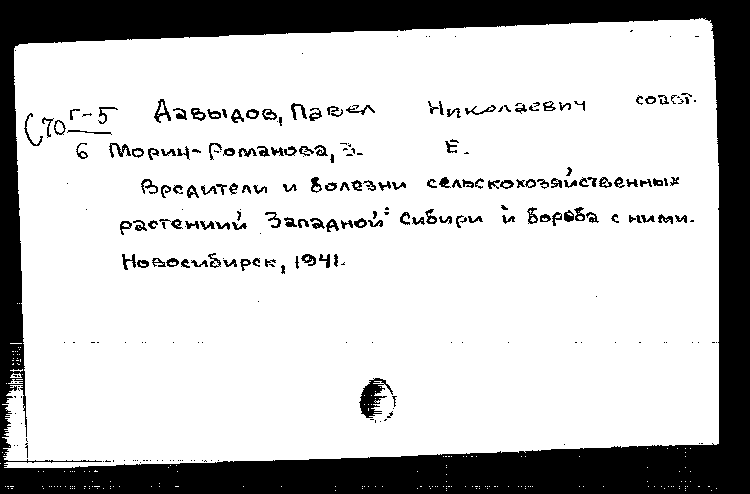 С70 Г-5 Давыдов, Павел Николаевич сост.
6 Мориц-Романова, З. Е.
Вредители и болезни сельскохозяйственных
растений Западной Сибири и борьба с ними.
Новосибирск, 1941.